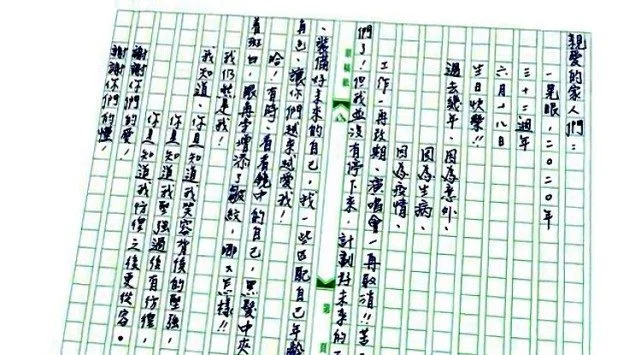 親愛的家人們：
一晃眼，二〇二〇年
三十二週年
六月十八日
生日快樂!!
過去幾年、因為意外、
因為生病、
因為疫情、
工作一再改期、演唱會一再取消!!苦
們了！但我並沒有停下來，計劃好未來的
、裝備好未來的自己，找一些匹配自己年齡
有色、讓你們越來越愛我！
哈！有時、看看鏡中的自己，黑髮中夾
着斑白，眼角多增添了皺紋，哪又怎樣!!
我仍然是我！
我知道、你真知道我笑容背後的堅強，
你真知道我堅強過後有彷徨，
你真知道我彷徨之後更從容。
謝謝你們的愛！
謝謝你們的懂！
原稿紙
八
第
頁